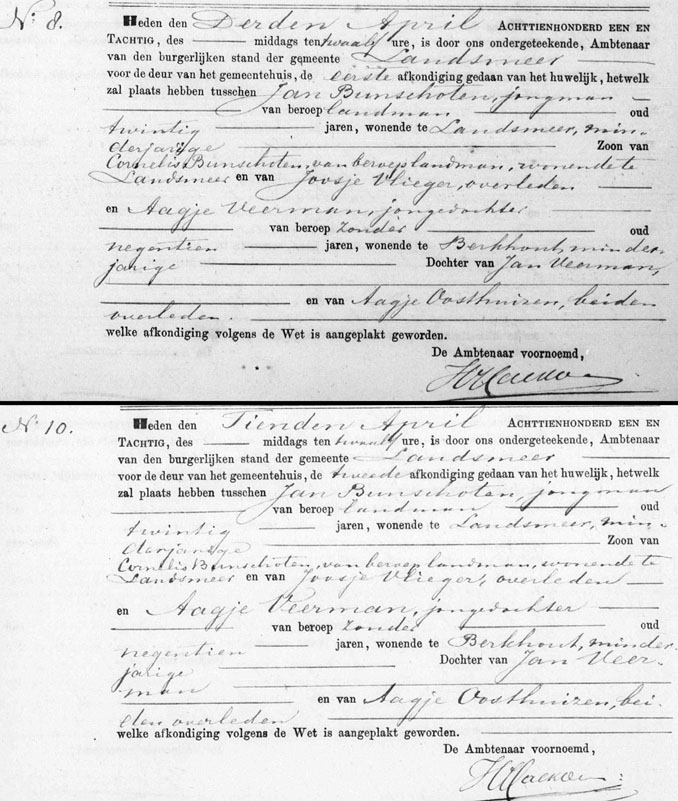 N: 8.
Heden den Derden April ACHTTIENHONDERD EEN EN
TACHTIG, des middags ten twaalf ure, is door ons ondergeteekende, Ambtenaar
van den burgerlijken stand der gemeente Landsmeer
voor de deur van het gemeentehuis, de eerste afkondiging gedaan van het huwelijk, hetwelk
zal plaats hebben tusschen Jan Bunschoten, jongman
van beroep landman oud
twintig jaren, wonende te Landsmeer, min-
derjarige Zoon van
Cornelis Bunschoten, van beroep landman, wonende te
Landsmeer en van Joosje Vlieger, overleden
en Aagje Veerman, jongedochter
van beroep zonder oud
negentien jaren, wonende te Berkhout, minder-
jarige Dochter van Jan Veerman,
en van Aagje Oosthuizen, beiden
overleden.
welke afkondiging volgens de Wet is aangeplakt geworden.
De Ambtenaar voornoemd,
N: 10.
Heden den Tienden April ACHTTIENHONDERD EEN EN
TACHTIG, des middags ten twaalf ure, is door ons ondergeteekende, Ambtenaar
van den burgerlijken stand der gemeente Landsmeer
voor de deur van het gemeentehuis, de tweede afkondiging gedaan van het huwelijk, hetwelk
zal plaats hebben tusschen Jan Bunschoten, jongman
van beroep landman oud
twintig jaren, wonende te Landsmeer, min-
derjarige Zoon van
Cornelis Bunschoten, van beroep landman, wonende te
Landsmeer en van Joosje Vlieger, overleden
en Aagje Veerman, jongedochter
van beroep zonder oud
negentien jaren, wonende te Berkhout, minder-
jarige Dochter van Jan Veer-
man en van Aagje Oosthuizen, bei-
den overleden
welke afkondiging volgens de Wet is aangeplakt geworden.
De Ambtenaar voornoemd,